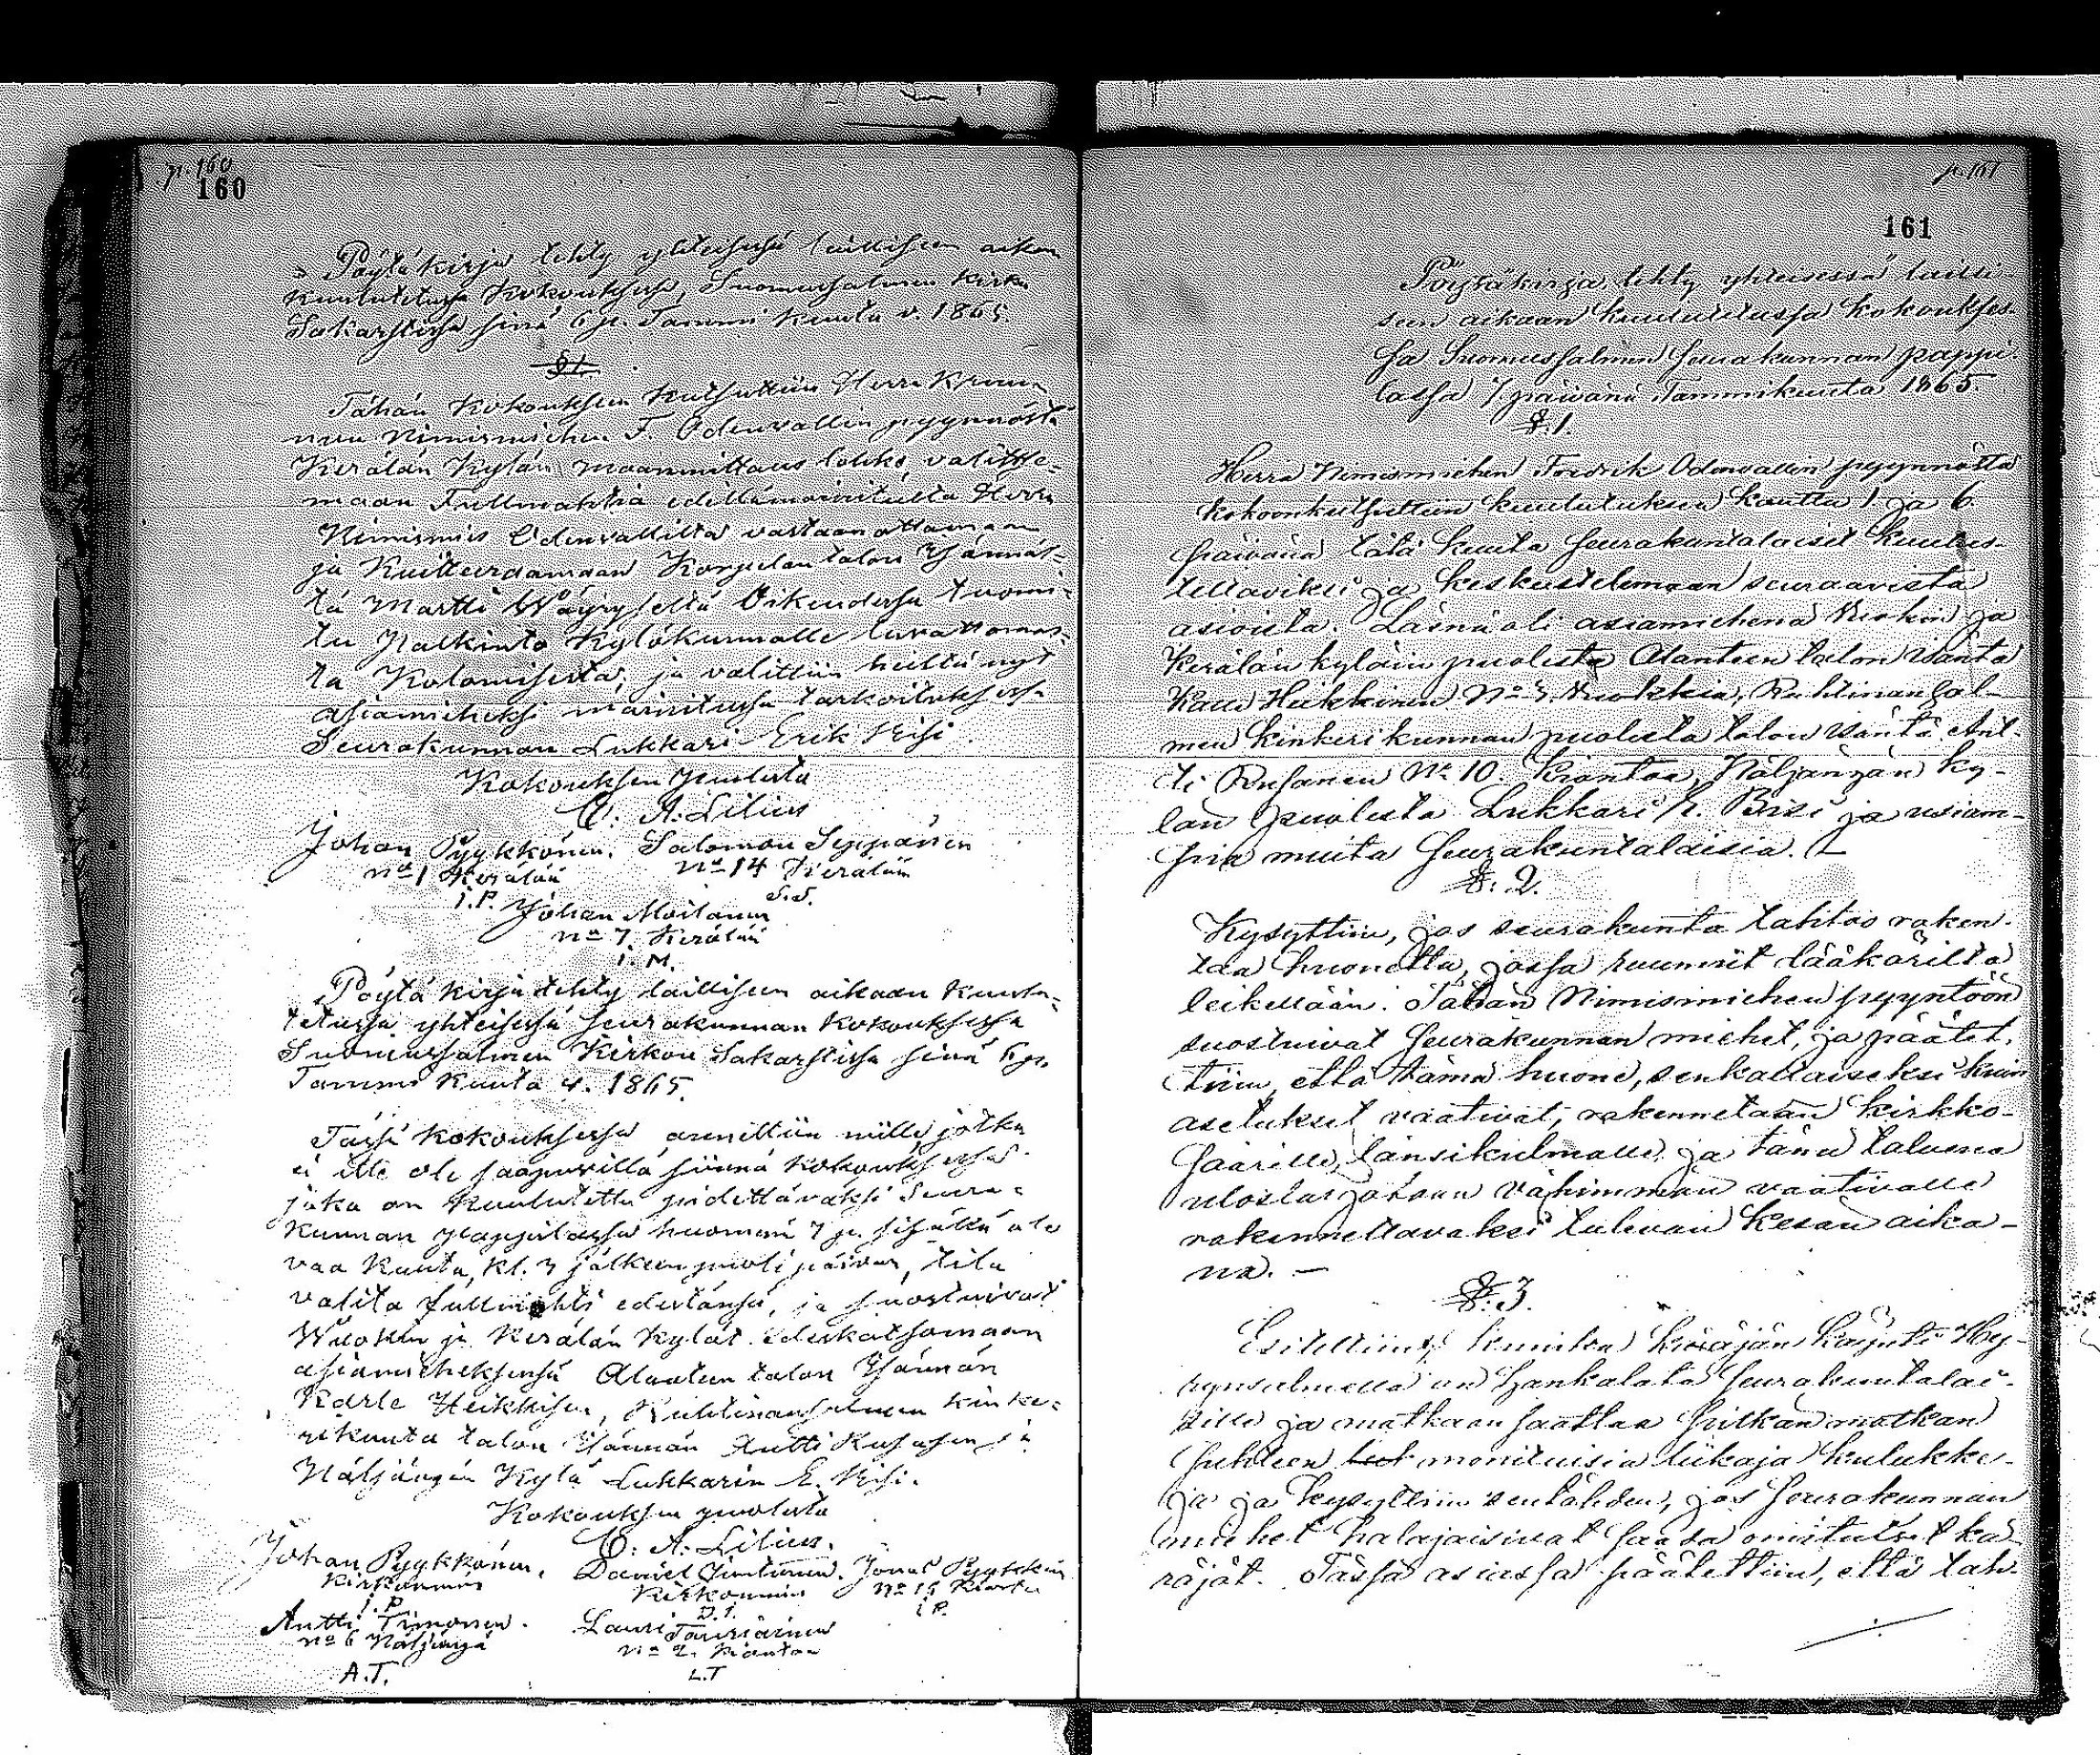 p. 160
160
Pöytäkirja tehty yhteisessä lailliseen aikan
kuulutetussa Kokouksessa, Suomussalmen Kirkon
Sakarstissa sinä 6 p. Tammi Kuuta v. 1865.
§1.
Tähän Kokouksen kutsuttiin Herra Kruunun
Nimismiehen F. Odenvallin pyynnöstä
Kerälän Kylän maanmittaus lohko valitse-
maan Fullmahtia edellämainitulta Herra
Nimismies Odenvallilta vastaanottamaan
ja Kuitteeraamaan Korpelan talon Isännäl-
tä Martti Wäyryseltä Oikeudessa tuomi-
tu Palkinto Kyläkunnalle luvattomas-
ta Kolomisesta, ja valittiin heiltä nyt
asiamieheksi mainitussa tarkoituksessa
Seurakunnan Lukkari Erik Bisi.
Kokouksen puolesta
C. A. Lilius
Johan Pyykkönen. Salomon Seppänen
No 1 Kerälän No 14 Kerälän
J.P. S.S.
Johan Moilanen
No 7 Kerälän
J. M.
Pöytäkirja tehty lailliseen aikaan kuulu-
tetussa yhteisessä seurakunnan Kokouksessa
Suomussalmen Kirkon Sakarstissa sinä 6 p.
Tammi Kuuta v. 1865.
Tässä kokouksessa neille jotka
ei itte ole saapuvilla siinnä kokouksessa
joka on kuulutettu pidettäväksi Seura-
kunnan pappilassa huomena 7 p. sisällä ole
vaa kuuta, kl. 3 jälkeen puoli päivän, tila
valita fullmahti edestänsä, ja suostuivat
Wuokin ja Kerälän Kylät edeskatsomaan
asiamieheksensä Alanteen talon Isännän
Karle Heikkisen, Ruhtinansalmen kinke-
rikunta talon Isännän Antti Rusasen ja
Näljängän Kylä Lukkarin E. Bisi.
Kokouksen puolesta
C. A. Lilius.
Johan Pyykkönen. Daniel Juntunen. Jonas Pyykkönen
Kirkonmies Kirkonmies No 15 Kianta
J. P. D. J. J. P.
Antti Timonen. Lauri Tauriainen
No 6 Näljängä No 2. Kiantaa
A.T. L.T
p. 161
161
Pöytäkirja, tehty yhteisessä lailli-
seen aikaan kuulutetussa kokoukses-
sa Suomussalmen Seurakunnan pappi-
lassa 7 päivänä Tammikuuta 1865.
§. 1.
Herra Nimismiehen Fredrik Odenvallin pyynnöstä
kokoonkutsuttiin kuulutuksen kautta 1. ja 6.
päivänä tätä kuuta seurakuntalaiset kuulus-
tellaviksi ja keskustelemaan seuraavista
asioista. Läsnä oli asiamiehenä Wuokin ja
Kerälän kyläin puolesta Alanteen talon isäntä
Kalle Heikkinen No 3. Wuokkia, Ruhtinansal-
men kinkerikunnan puolesta talon isäntä Ant-
ti Rusanen No 10. Kiantaa, Näljängän ky-
län puolesta Lukkari E. Bisi ja usiam-
pia muita Seurakuntalaisia.
§. 2.
Kysyttiin, jos seurakunta tahtoo raken-
taa huonetta, jossa ruumiit lääkäriltä
leikellään. Tähän Nimismiehen pyyntöön
suostuivat Seurakunnan miehet, ja päätet-
tiin, että tämä huone, senkaltaiseksi kuin
asetukset vaativat, rakennetaan kirkko-
saarille, länsikulmalle, ja tänä talvena
ulostarjotaan vähimmän vaativalle
rakennettavaksi tulevan kesän aika-
na. —
§. 3.
Esitettiin, kuinka käräjän käynti Hy-
rynsalmella on hankalata seurakuntalai-
sille ja matkaan saattaa pitkän matkan
suhteen monituisia liikoja kulukke-
ja ja kysyttiin sentähden, jos Seurakunnan
miehet halajaisivat saada omituiset kä-
räjät. Tässä asiassa päätettiin, että tah-